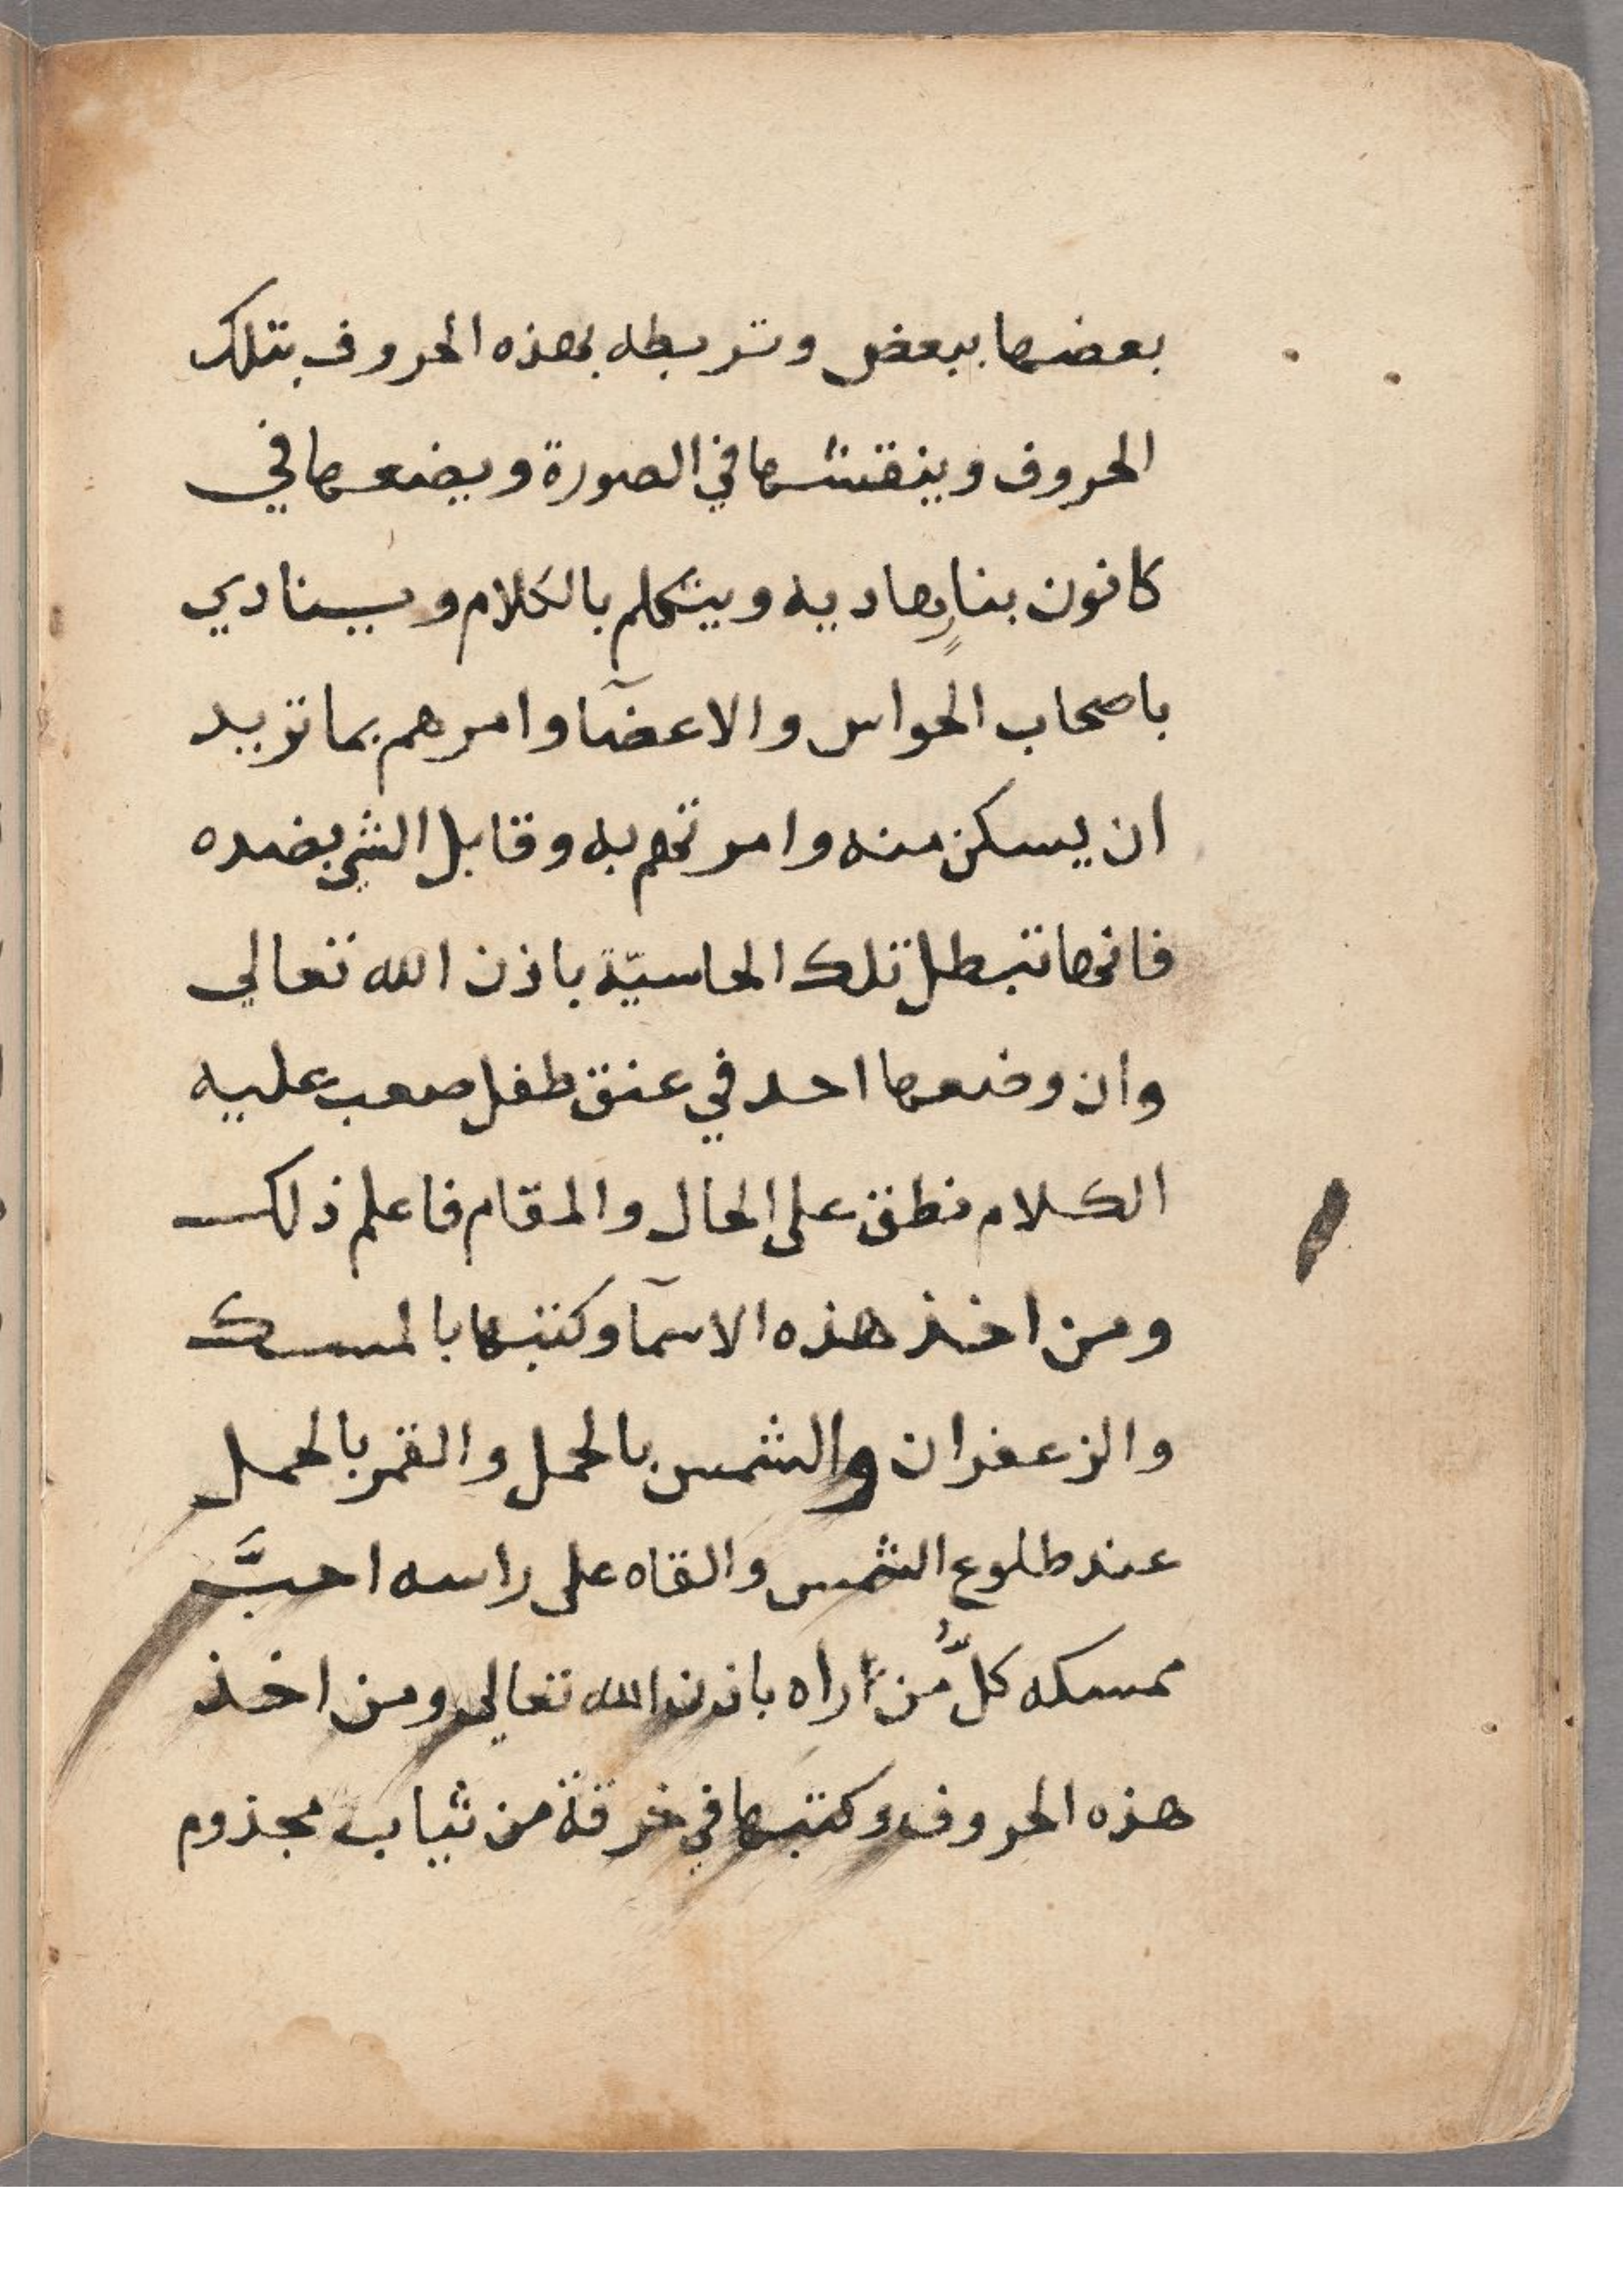 بعضها ببعض وتربطه بهذه الحروف بتلك
الحروف وينقشها في الصورة ويضعها في
كانون بنارٍ هاديه ويتكلم بالكلام وينادي
باصحاب الحواس والاعضآ وامرهم بما تريد
ان يسكن منه وامرتهم به وقابل الشي بضده
فانها تبطل تلك الحاسيّة باذن الله تعالي
وان وضعها احد في عنق طفل صعب عليه
الكلام نطق على الحال والمقام فاعلم ذلك
ومن اخذ هذه الاسمآ وكتبها بالمسك
والزعفران والشمس بالحمل والقمر بالحمل
عند طلوع الشمس والقاه على راسه احبَّ
ممسكه كلُّ من راه باذن الله تعالى ومن اخذ
هذه الحروف وكتبها في خرقة من ثياب مجذوم